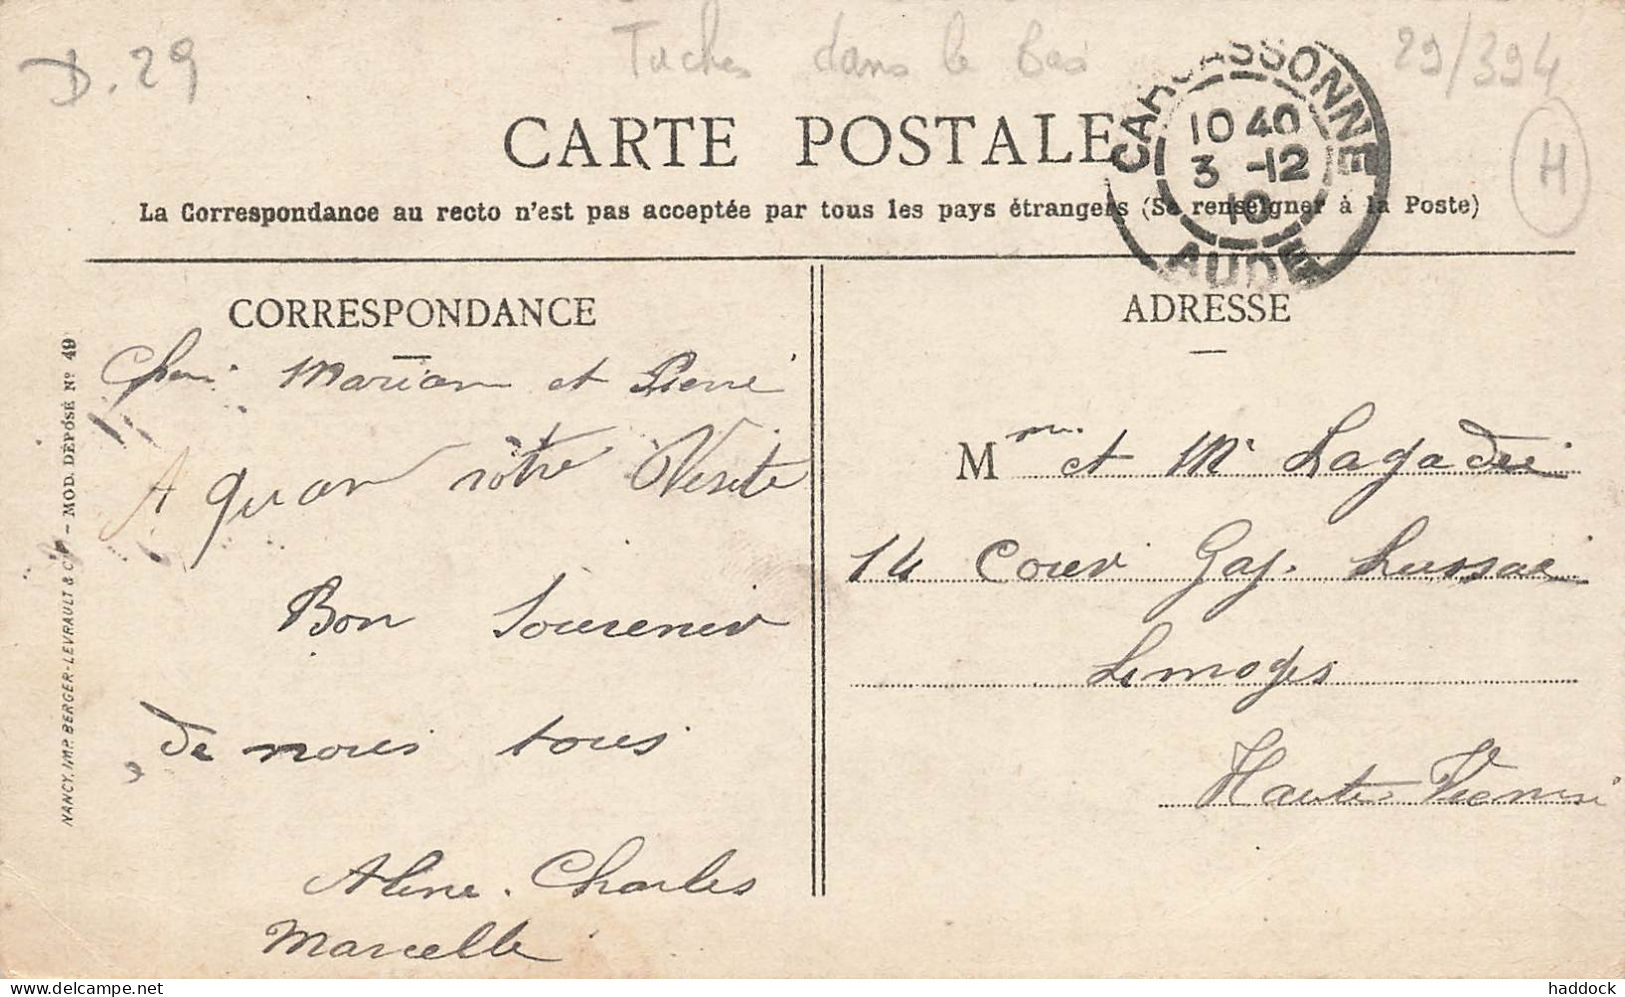 D. 29
Taches dans le bas
29/394
H
CARTE POSTALE
CARCASSONNE
10 40
3 -12
10
AUDE
La Correspondance au recto n'est pas acceptée par tous les pays étrangers (Se renseigner à la Poste)
CORRESPONDANCE
ADRESSE
Marian et Pierre
A quan votre Visite
Bon Souvenir
de nous tous
Aline. Charles
Marcelle
Mme et Mr Lagadrie
14 Cour Gay. Lussac
Limoges
Haute Vienne
NANCY, IMP. BERGER-LEVRAULT & Cie – MOD. DÉPOSÉ No 49
haddock